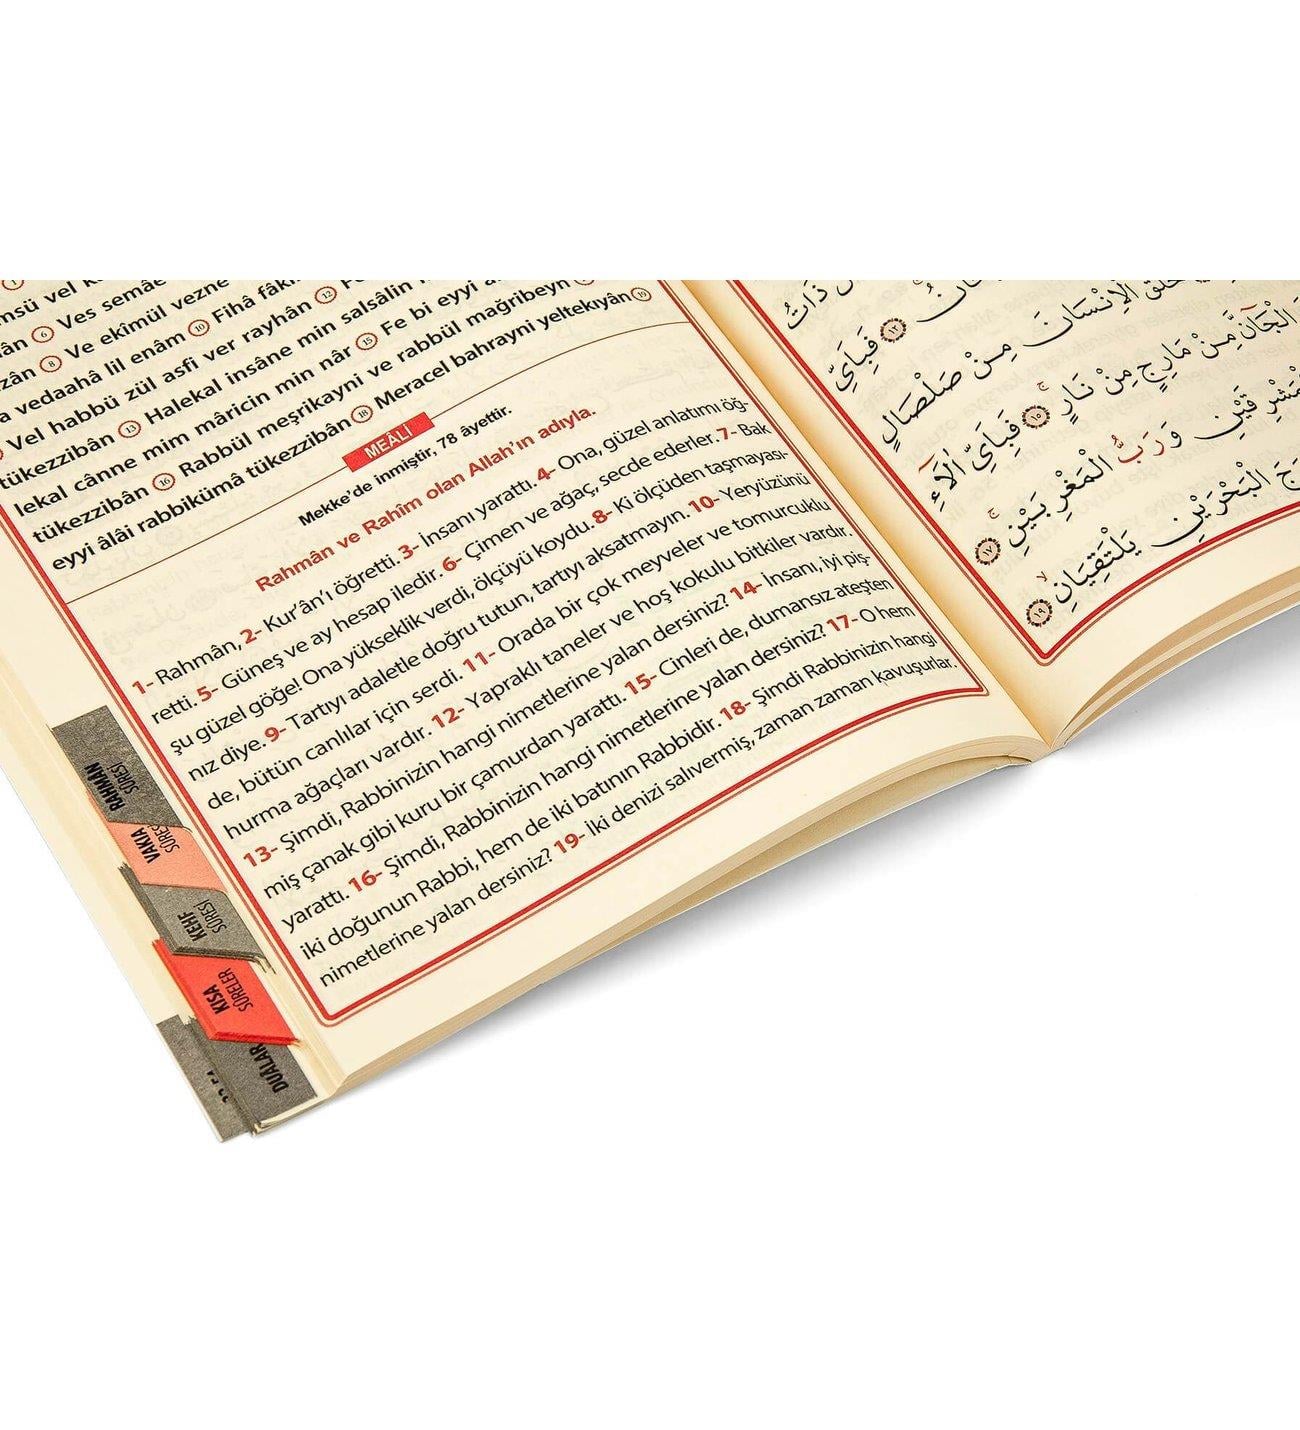 ân ⑥ Ves semâe
zân ⑧ Ve ekîmül vezne
a vedaahâ lil enâm ⑩ Fihâ fâki
Vel habbü zül asfi ver rayhân ⑫
tükezzibân ⑬ Halekal insâne min salsâlin
lekal cânne mim mâricin min nâr ⑮ Fe bi eyyi
tükezzibân ⑯ Rabbül meşrikayni ve rabbül mağribeyn
eyyi âlâi rabbikümâ tükezzibân ⑱ Meracel bahrayni yeltekıyân ⑲
MEÂLİ
Mekke'de inmiştir, 78 âyettir.
Rahmân ve Rahîm olan Allah'ın adıyla.
1- Rahmân, 2- Kur'ân'ı öğretti. 3- İnsanı yarattı. 4- Ona, güzel anlatımı öğ-
retti. 5- Güneş ve ay hesap iledir. 6- Çimen ve ağaç, secde ederler. 7- Bak
şu güzel göğe! Ona yükseklik verdi, ölçüyü koydu. 8- Ki ölçüden taşmayası-
nız diye. 9- Tartıyı adaletle doğru tutun, tartıyı aksatmayın. 10- Yeryüzünü
de, bütün canlılar için serdi. 11- Orada bir çok meyveler ve tomurcuklu
hurma ağaçları vardır. 12- Yapraklı taneler ve hoş kokulu bitkiler vardır.
13- Şimdi, Rabbinizin hangi nimetlerine yalan dersiniz? 14- İnsanı, iyi piş-
miş çanak gibi kuru bir çamurdan yarattı. 15- Cinleri de, dumansız ateşten
yarattı. 16- Şimdi, Rabbinizin hangi nimetlerine yalan dersiniz? 17- O hem
iki doğunun Rabbi, hem de iki batının Rabbidir. 18- Şimdi Rabbinizin hangi
nimetlerine yalan dersiniz? 19- İki denizi salıvermiş, zaman zaman kavuşurlar.
RAHMÂN SÛRESİ
VAKIA SÛRESİ
KEHF SÛRESİ
KISA SÛRELER
DUÂLAR
ذَاتُ
١٢ فَبِاَيِّ
خَلَقَ الْاِنْسَانَ مِنْ صَلْصَالٍ
الْجَٓانَّ مِنْ مَارِجٍ مِنْ نَارٍ ١٥ فَبِاَيِّ اٰلَٓاءِ
وَرَبُّ الْمَغْرِبَيْنِ ١٧
الْبَحْرَيْنِ يَلْتَقِيَانِ ١٩